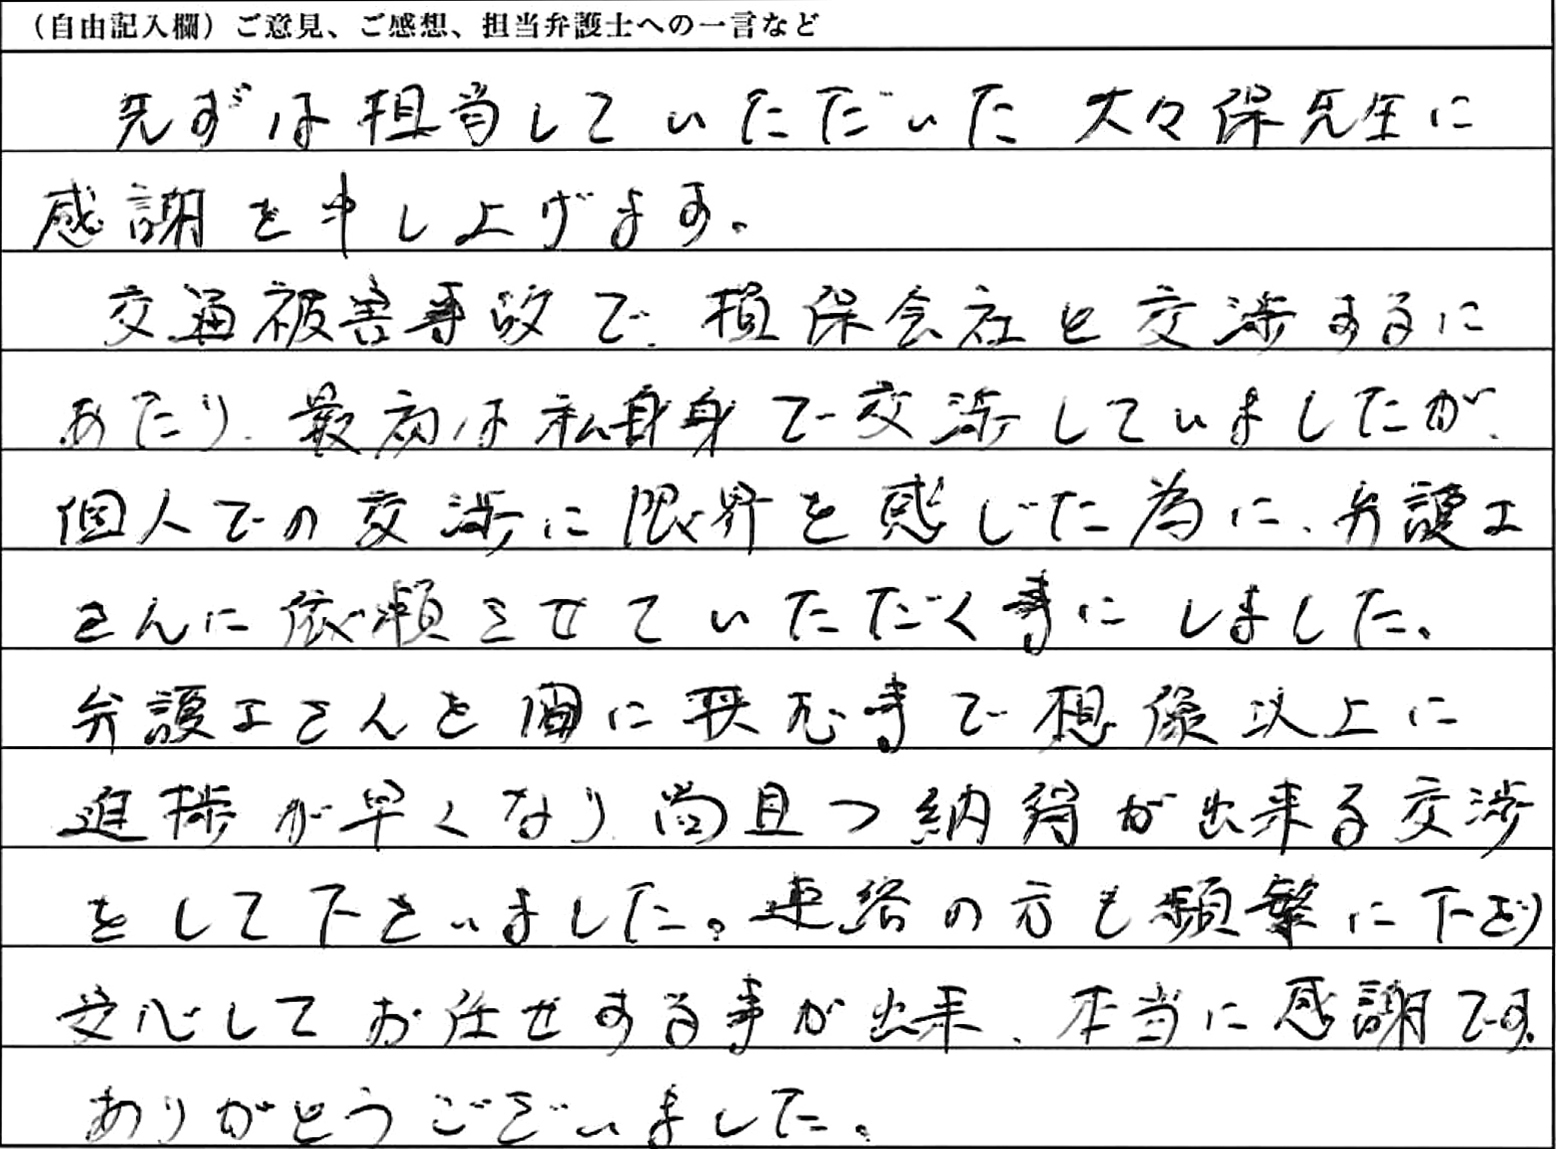 （自由記入欄）ご意見、ご感想、担当弁護士への一言など
先ずは担当していただいた大々保先生に
感謝を申し上げます。
交通被害事故で、損保会社と交渉するに
あたり、最初は私自身で交渉していましたが、
個人での交渉に限界を感じた為に、弁護士
さんに依頼させていただく事にしました。
弁護士さんを間に挟む事で想像以上に
進捗が早くなり、尚且つ納得が出来る交渉
をして下さいました。連絡の方も頻繁に下さり
安心してお任せする事が出来、本当に感謝です。
ありがとうございました。